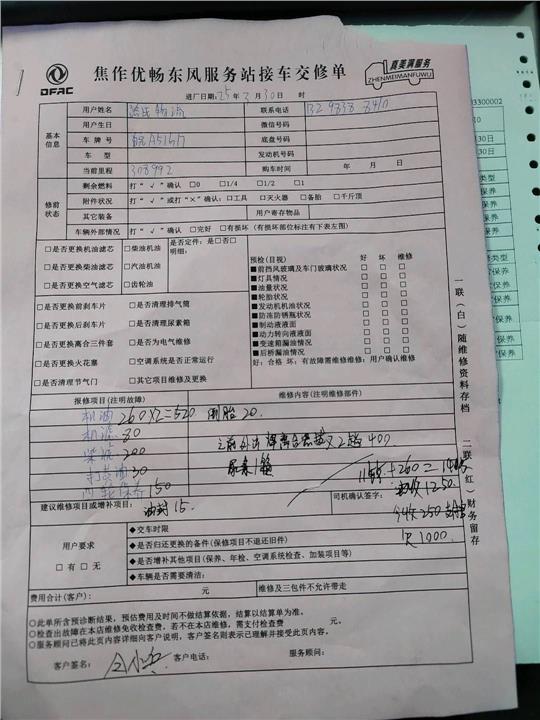 DFAC
焦作优畅东风服务站接车交修单
真美满服务
ZHENMEIMANFUWU
进厂日期:25年3月30日 时
基本信息
用户姓名 联系电话 132 9838 8410
用户生日 微信号码
车牌号 底盘号码
车型 发动机号码
当前里程 308992 购车时间 年 月 日
修前状态
剩余燃料 打“√”确认 □0 □1/4 □1/2 □1
附件状况 打“√”或打“×”确认:□工具 □灭火器 □备胎 □千斤顶
其它装备 用户寄存物品
车辆外部情况 打“√”确认 □完好 □有损坏(有损坏部位标注有下表左图)
□是否更换机油滤芯 □柴油机油
□是否更换柴油滤芯 □汽油机油
□是否更换空气滤芯 □齿轮油
是否定件:是□否□
明细:
□是否更换前刹车片 □是否清理排气筒
□是否更换后刹车片 □是否清理尿素箱
□是否更换离合三件套 □是否为电气维修
□是否更换火花塞 □空调系统是否正常运行
□是否清理节气门 □其它项目维修及更换
预检(目视) 好 坏 维修
■前挡风玻璃及车门玻璃状况 □ □ □
■灯具情况 □ □ □
■油量状况 □ □ □
■轮胎状况 □ □ □
■发动机机油状况 □ □ □
■防冻防锈瓶状况 □ □ □
■制动液液面 □ □ □
■动力转向液液面 □ □ □
■变速箱漏油情况 □ □ □
■后桥漏油情况 □ □ □
好:合格 坏:有故障需维修维修:用户确认维修
报修项目(注明故障) 维修内容(注明维修部件)
机油 260X2=520 倒胎20.
机滤 80
柴滤 200
打黄油 30
保养 150
尿素1箱
1165+260=1425
实收1250.
欠1000.
建议维修项目或增补项目: 油封15. 司机确认签字:
用户要求
□有 □无
◆交车时限
◆是否归还更换的备件(保修项目不退还旧件)
◆是否增补其他项目(保养、年检、空调系统检查、加装项目等)
◆车辆是否需要清洁:
费用合计(客户): 元 维修及三包件不允许带走
○此单所含预诊断结果,预估费用及时间不做结算依据,结算以结算单为准。
○检查出故障在本店维修免收检查费,若不在本店维修,需支付检查费 元。
○服务顾问已将此页内容详细向客户说明,客户签名则表示已理解并接受此页内容。
客户签名: 客户电话: 服务顾问:
一联(白)随维修资料存档
二联(红)财务留存